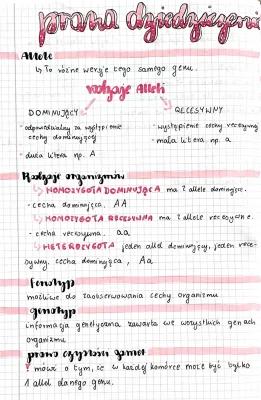 prawa dziedziczenia
Allele
↳ To różne wersje tego samego genu.
rodzaje Alleli
DOMINUJĄCY
RECESYWNY
- odpowiedzialny za wystąpienie
cechy dominującej
- występienie cechy recesywnej
- mała litera np. a
- duża litera np. A
Rodzaje organizmów
↳ HOMOZYGOTA DOMINUJĄCA ma 2 allele dominujące.
- cecha dominująca, AA
↳ HOMOZYGOTA RECESYWNA ma 2 allele recesywne.
- cecha recesywna, aa
↳ HETEROZYGOTA jeden allel dominujący, jeden rece-
sywny, cecha dominująca, Aa
fenotyp
możliwe do zaobserwowania cechy organizmu
genotyp
informacja genetyczna zawarta we wszystkich genach
organizmu
prawo czystości gamet
mówi o tym, że w każdej komórce może być tylko
1 allel danego genu.